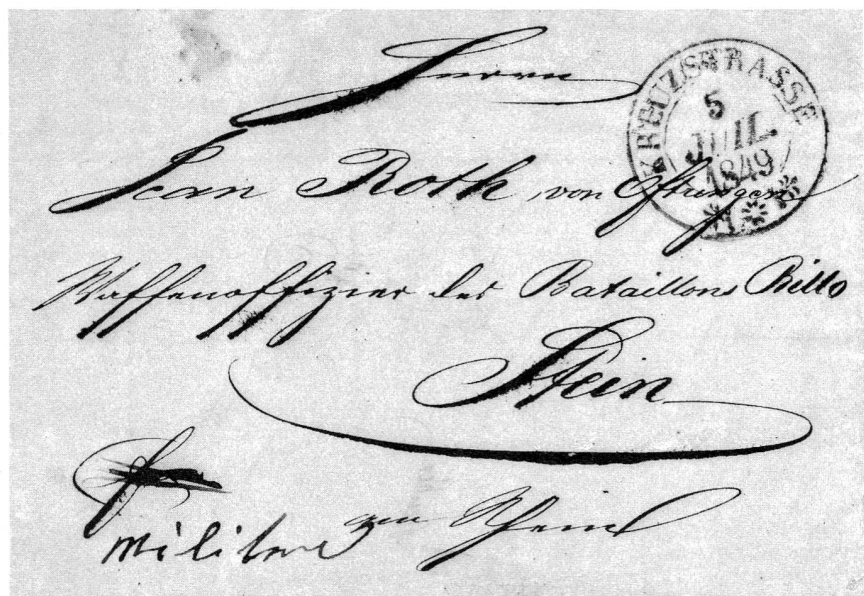 Herrn
KREUZSTRASSE
5
JUIL
1849
Jean Roth von Oftringen
Waffenoffizier des Bataillons Billo
Stein
am Rhein
Militare